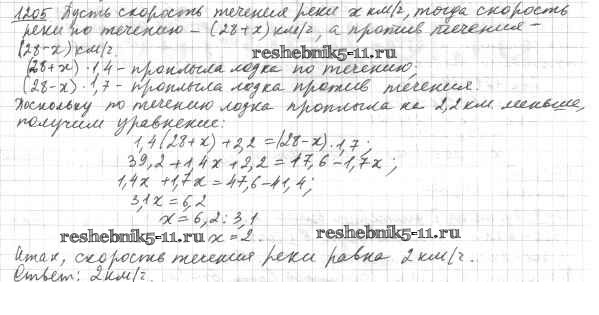 1205 Пусть скорость течения реки x км/г, тогда скорость
реки по течению – (28+x) км/г, а против течения –
(28-x) км/г.
reshebnik5-11.ru
(28+x)·1,4 – проплыла лодка по течению;
(28-x)·1,7 – проплыла лодка против течения.
Поскольку по течению лодка проплыла на 2,2 км меньше,
получим уравнение:
1,4(28+x)+2,2=(28-x)·1,7;
39,2+1,4x+2,2=17,6-1,7x;
1,4x+1,7x=47,6-41,4;
3,1x=6,2
x=6,2:3,1
reshebnik5-11.ru x=2. reshebnik5-11.ru
Итак, скорость течения реки равна 2 км/г.
Ответ: 2 км/г.